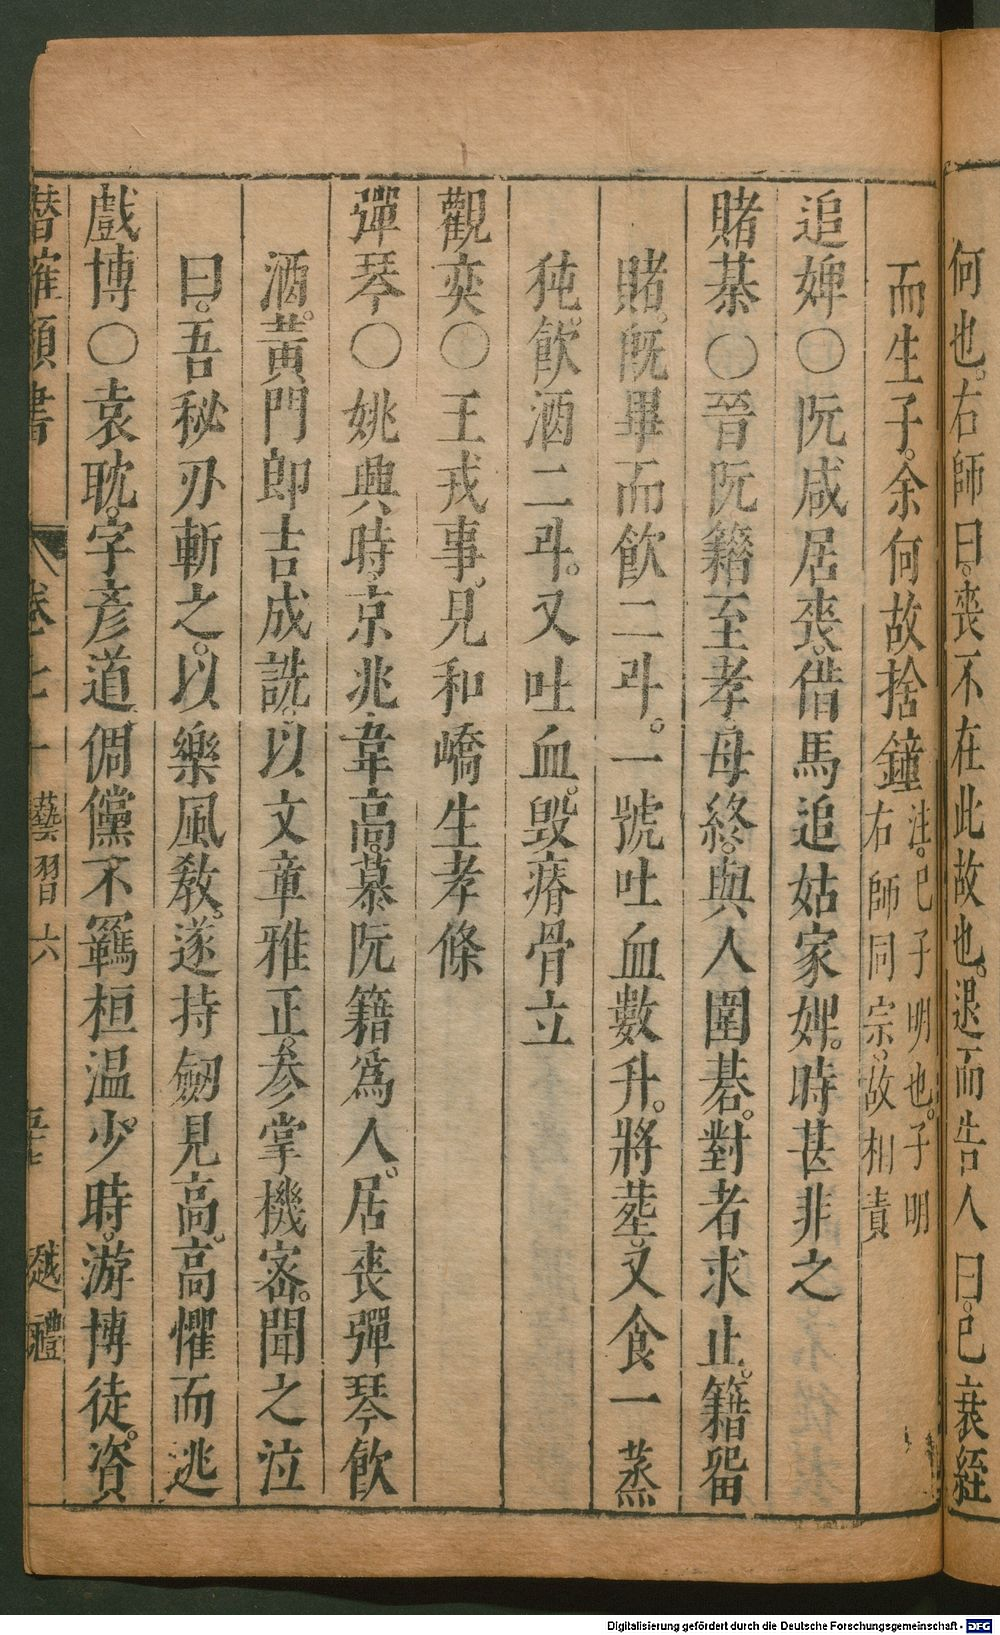 何也。右師曰。喪不在此故也。退而告人曰。已衰絰
而生子。余何故捨鐘
注。已子明也。子明
右師同宗。故相責
追婢〇阮咸居喪。借馬追姑家婢。時甚非之
賭棊〇晉阮籍至孝。母終。與人圍碁。對者求止。籍畱
賭。旣畢而飲二斗。一號吐血數升。將塟。又食一蒸
㹠。飲酒二斗。又吐血。毀瘠骨立
觀奕〇王戎事。見和嶠生孝條
彈琴〇姚興時。京兆韋高。慕阮籍爲人。居喪彈琴飲
酒。黃門郎吉成詵。以文章雅正。参掌機宻。聞之泣
曰。吾秘刅斬之。以樂風敎。遂持劒見高。高懼而逃
戲博〇袁耽。字彦道。倜儻不羈。桓温少時。游博徒。資
卷七十 藝習 六 越禮
Digitalisierung gefördert durch die Deutsche Forschungsgemeinschaft - DFG